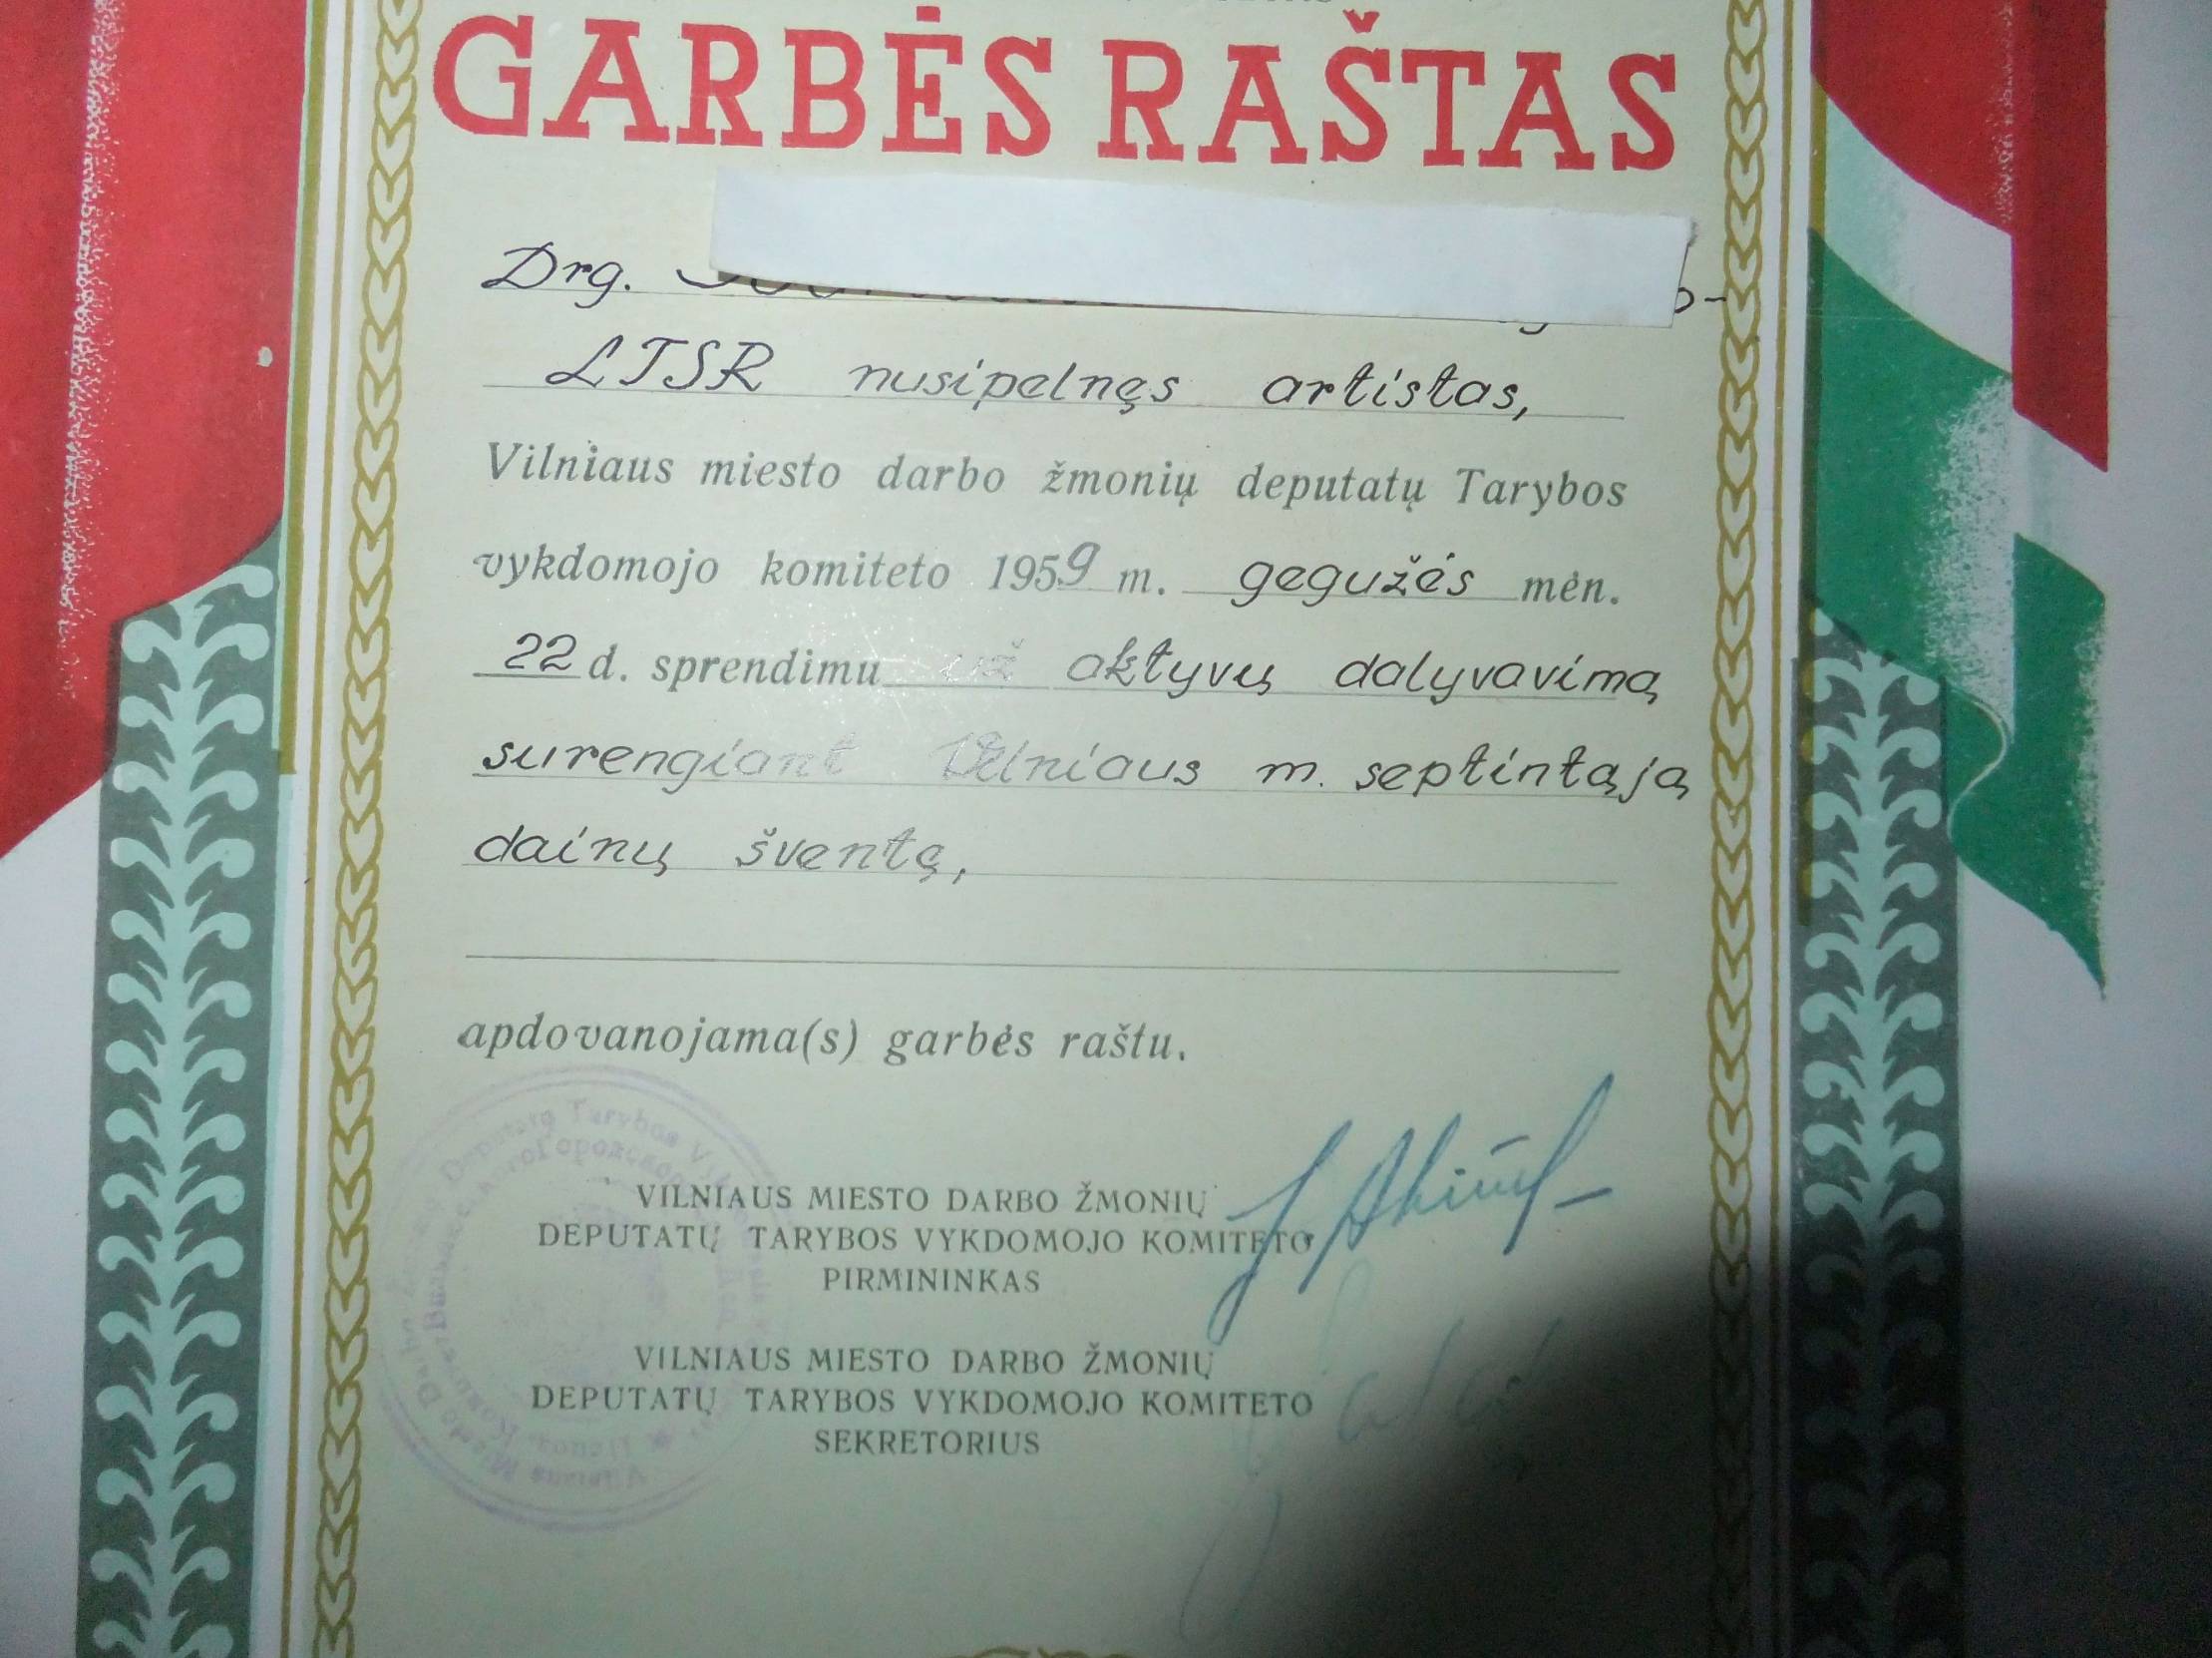 GARBĖS RAŠTAS
Drg.
LTSR nusipelnęs artistas,
Vilniaus miesto darbo žmonių deputatų Tarybos
vykdomojo komiteto 1959 m. gegužės mėn.
22 d. sprendimu už aktyvų dalyvavimą
surengiant Vilniaus m. septintąją
dainų šventę,
apdovanojama(s) garbės raštu.
VILNIAUS MIESTO DARBO ŽMONIŲ
DEPUTATŲ TARYBOS VYKDOMOJO KOMITETO
PIRMININKAS
VILNIAUS MIESTO DARBO ŽMONIŲ
DEPUTATŲ TARYBOS VYKDOMOJO KOMITETO
SEKRETORIUS